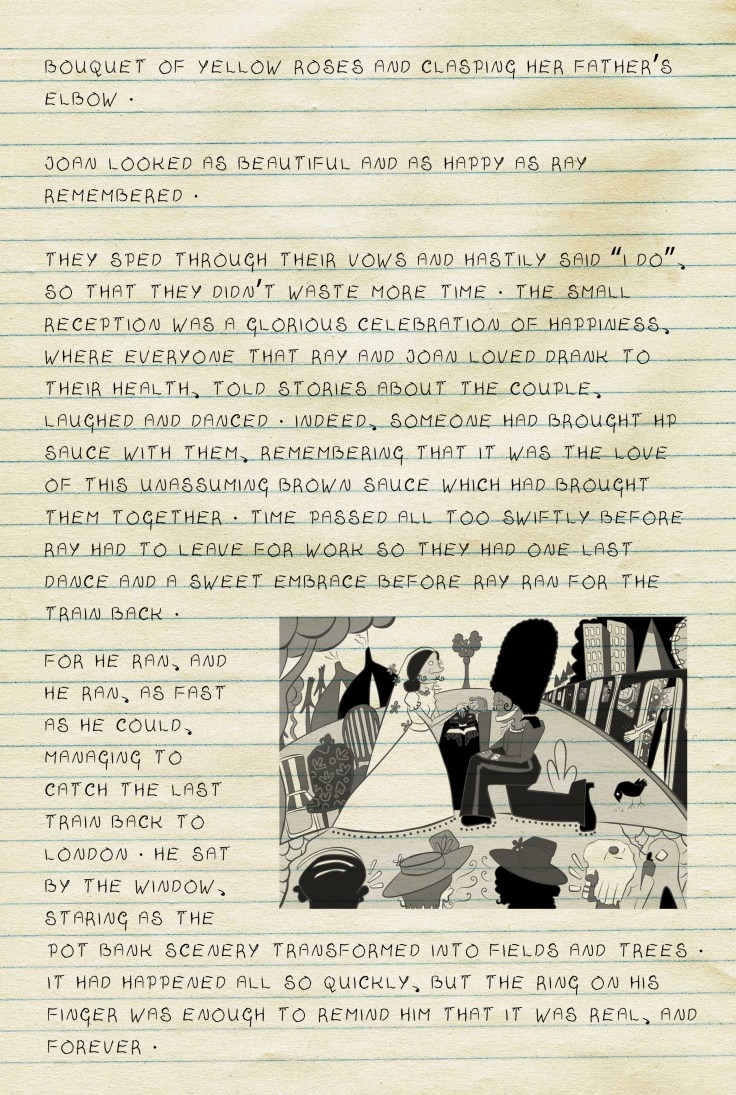 BOUQUET OF YELLOW ROSES AND CLASPING HER FATHER'S
ELBOW .
JOAN LOOKED AS BEAUTIFUL AND AS HAPPY AS RAY
REMEMBERED .
THEY SPED THROUGH THEIR VOWS AND HASTILY SAID "I DO",
SO THAT THEY DIDN'T WASTE MORE TIME . THE SMALL
RECEPTION WAS A GLORIOUS CELEBRATION OF HAPPINESS,
WHERE EVERYONE THAT RAY AND JOAN LOVED DRANK TO
THEIR HEALTH, TOLD STORIES ABOUT THE COUPLE,
LAUGHED AND DANCED . INDEED, SOMEONE HAD BROUGHT HP
SAUCE WITH THEM, REMEMBERING THAT IT WAS THE LOVE
OF THIS UNASSUMING BROWN SAUCE WHICH HAD BROUGHT
THEM TOGETHER . TIME PASSED ALL TOO SWIFTLY BEFORE
RAY HAD TO LEAVE FOR WORK SO THEY HAD ONE LAST
DANCE AND A SWEET EMBRACE BEFORE RAY RAN FOR THE
TRAIN BACK .
FOR HE RAN, AND
HE RAN, AS FAST
AS HE COULD,
MANAGING TO
CATCH THE LAST
TRAIN BACK TO
LONDON . HE SAT
BY THE WINDOW,
STARING AS THE
POT BANK SCENERY TRANSFORMED INTO FIELDS AND TREES .
IT HAD HAPPENED ALL SO QUICKLY, BUT THE RING ON HIS
FINGER WAS ENOUGH TO REMIND HIM THAT IT WAS REAL, AND
FOREVER .